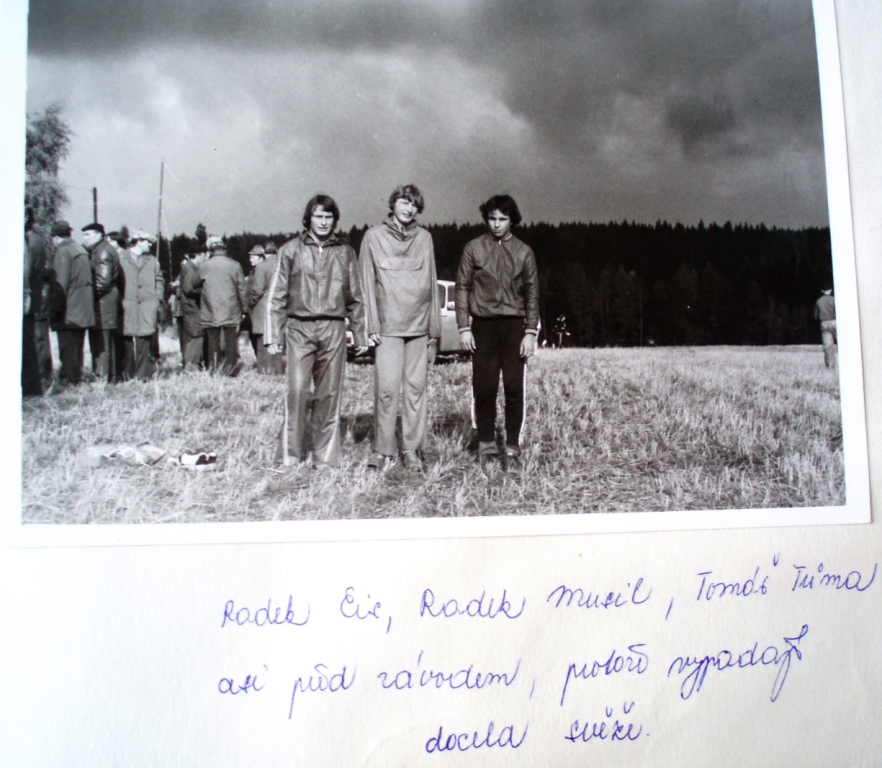 Radek Eis, Radek Musil, Tomáš Tůma
asi před závodem, protože vypadají
docela svěže.